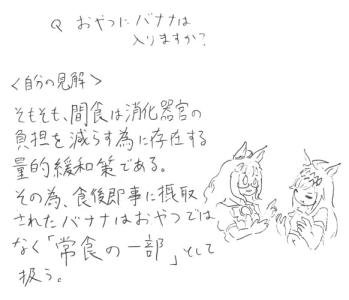 Q おやつにバナナは
入りますか?
<自分の見解>
そもそも、間食は消化器官の
負担を減らす為に存在する
量的緩和策である。
その為、食後即事に摂取
されたバナナはおやつでは
なく「常食の一部」として
扱う。